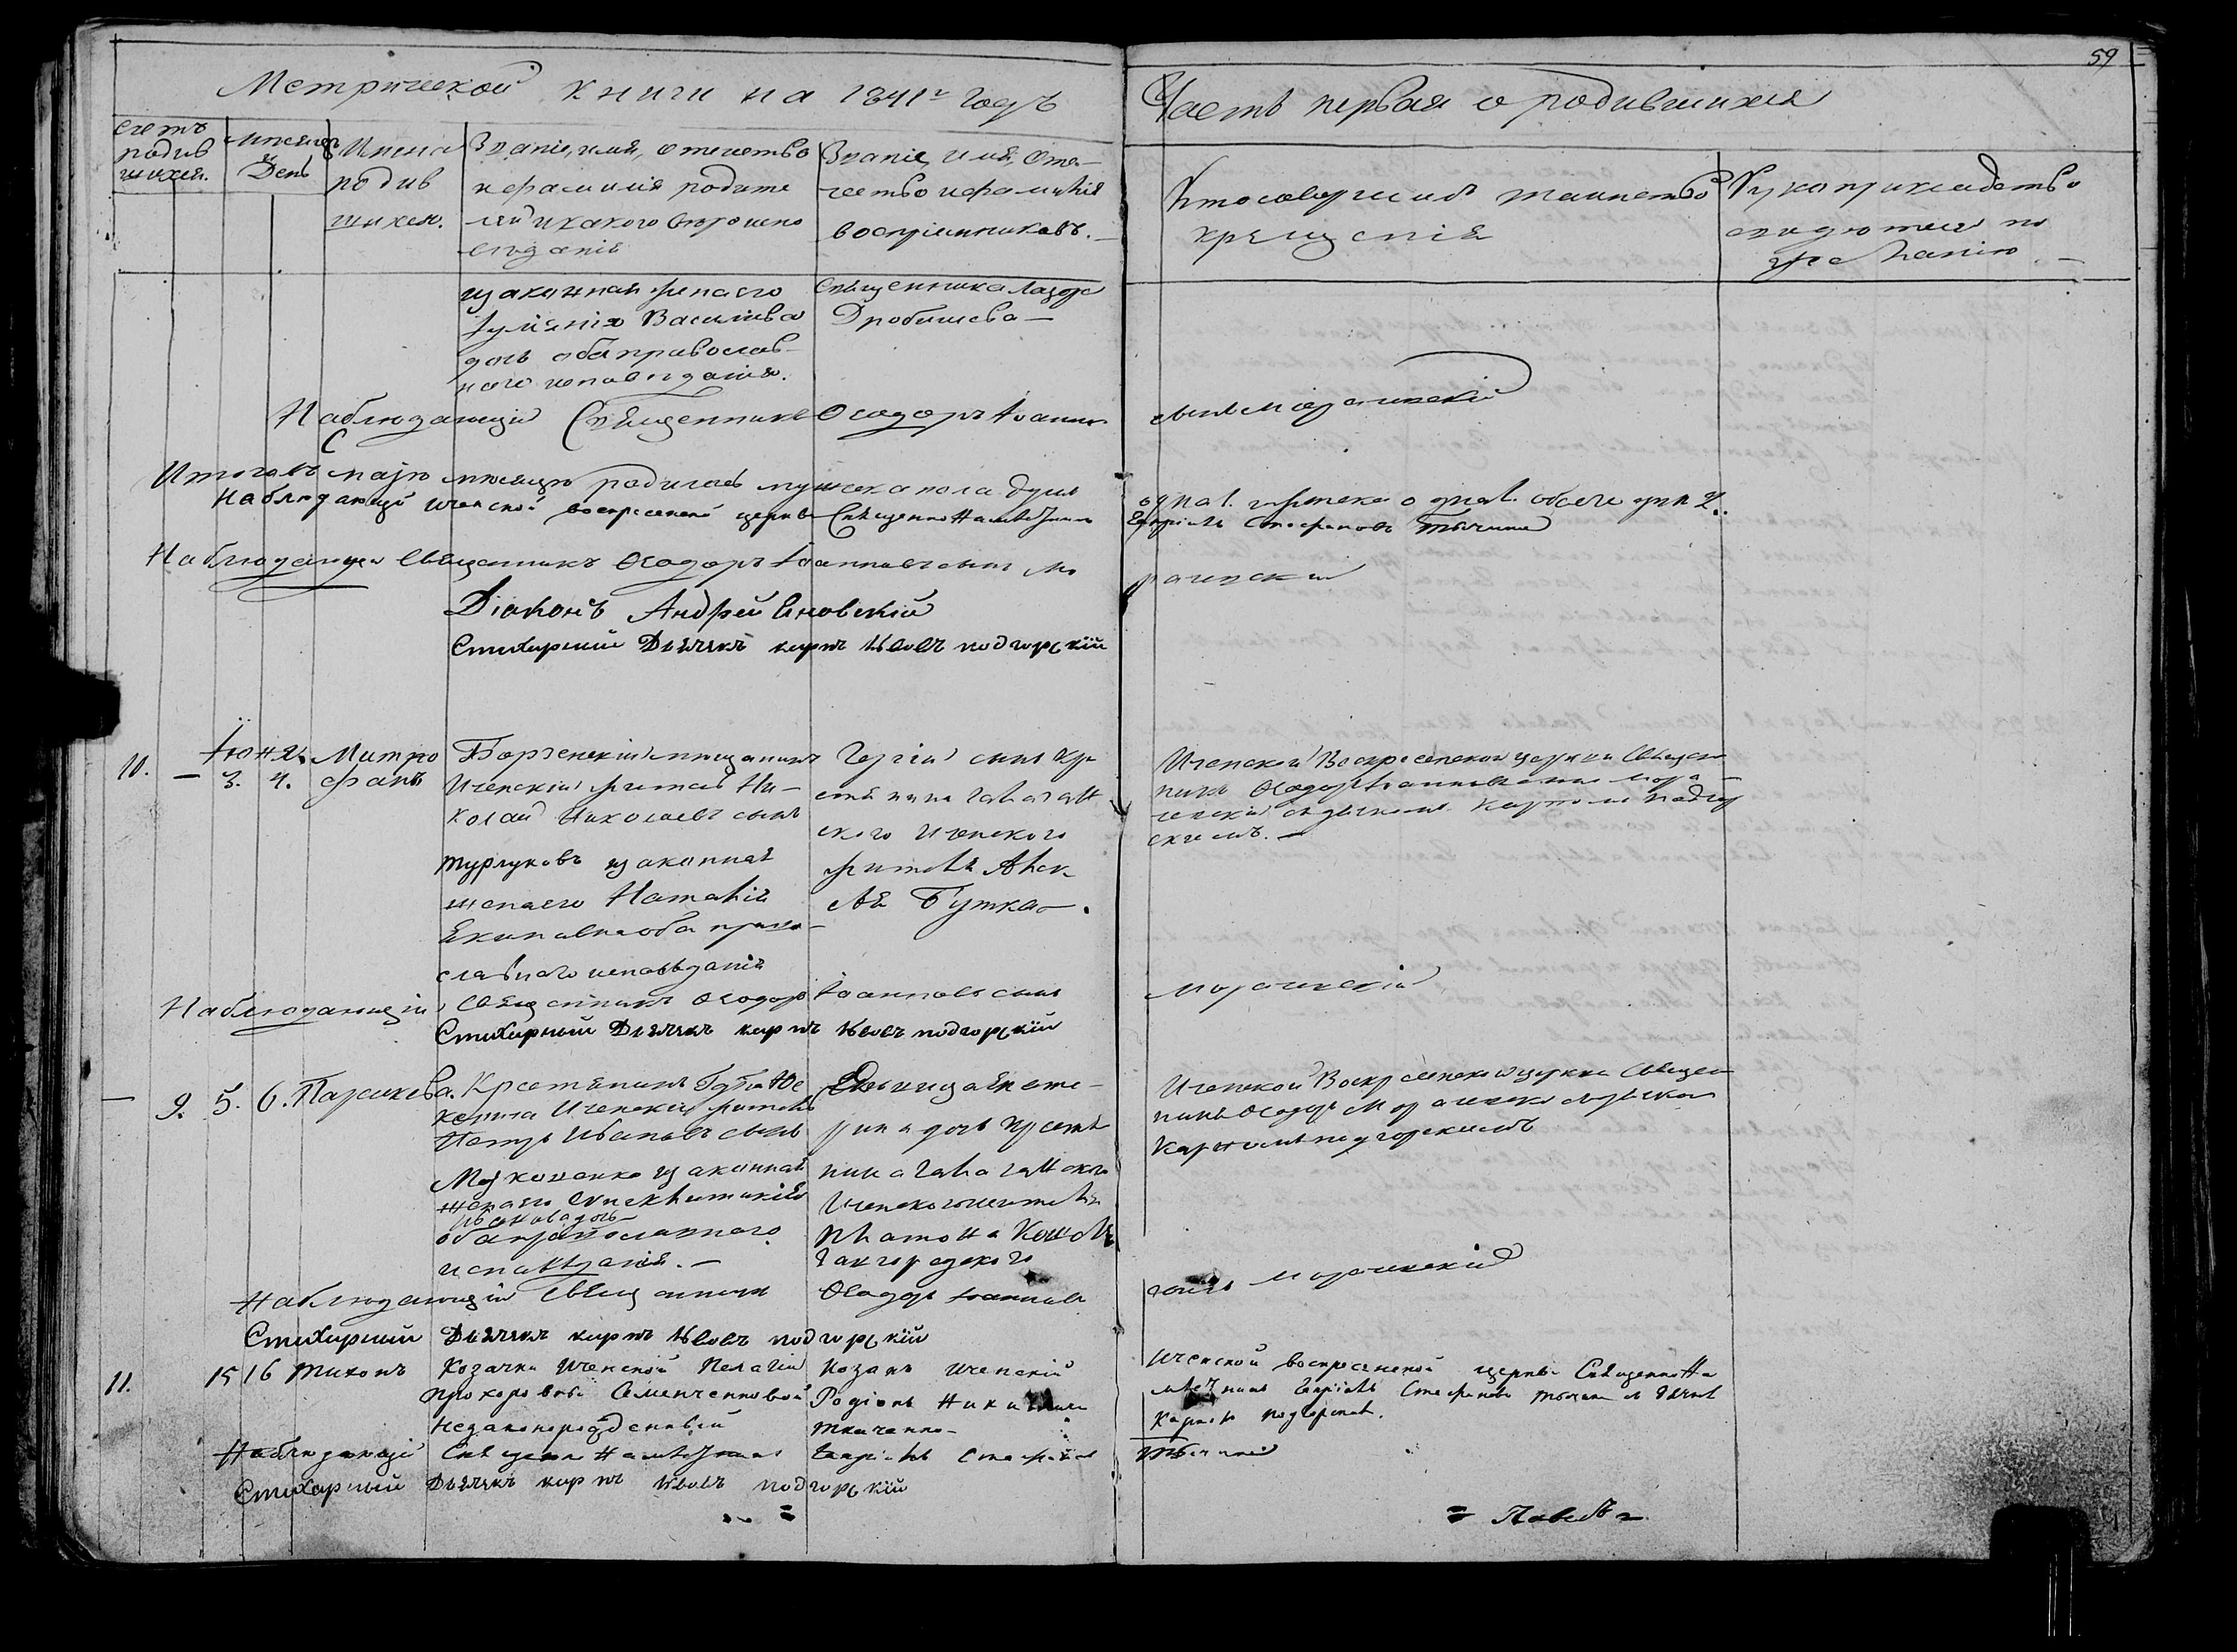 59
Метрической книги на 1841й годъ
Часть первая о родившихся
Счетъ родив шихся.
Мѣсяцъ и День
Имена родив шихся.
Званіе, имя, отечество
и фамилія родите
лей и какого вѣроиспо
вѣданія
Званіе, имя, Оте-
чество и фамилія
воспріемниковъ.-
Кто совершилъ таинство
крещенія
Рукоприкладство
свидѣтелей по
желанію -
и законная жена его
Іуліанія Васильева
дочь оба православ-
наго исповѣданія.
Священника Лазоря
Дробишева -
Наблюдающій Священникъ Ѳеодоръ Іоаннов
сынъ Морачевскій
Итого въ маѣ мѣсяцѣ родилось мужеска пола душъ
одна 1. женска одна 1. обоего душъ 2.
Наблюдающій Иченской воскресенской церкви СвященноНамѣстникъ
Гавріилъ Стефановъ Тычина
Наблюдающій Священникъ Ѳеодоръ Іоанновъ сынъ Мо
рачевскій
Діаконъ Андрей Еновскій
Стихарный Дьячекъ карпъ Ивовъ подгорскій
10. - Іюня 3. 4. Митро
фанъ
Борзенскій мѣщанинъ
Иченскій житель Ни-
колай Николаевъ сынъ
Турлуковъ и законная
жена его Наталія
Екимовна оба право-
славнаго исповѣданія
Георгій сынъ Кре
стянина Галагани
ского Иченского
жителя Алек
Бутка.
Иченской Воскресенской церкви Священ
никъ Ѳеодоръ Іоанновъ сынъ Мора-
чевскій съ дьячкомъ Карпомъ Подгор
скимъ. -
Наблюдающій Священникъ Ѳеодоръ Іоанновъ сынъ
Морачевскій
Стихарный Дьячекъ карпъ Ивовъ подгорскій
- 9. 5. 6. Параскева.
Крестянинъ
Иченскій житель
Петръ Ивановъ сынъ
и законная
жена его
Иванова дочь
оба православнаго
исповѣданія. -
Дѣвица Екате-
рина дочь Крестя
нина Галаганского
Иченского жителя
Платона
Иченской Воскресенской церкви Священ
никъ Ѳеодоръ Морачевскій съ дьячком
Карпомъ подгорскимъ
Наблюдающій Священникъ Ѳеодоръ Іоаннов
сынъ Морачевскій
Стихарный Дьячекъ карпъ Ивовъ подгорскій
11. 15 16 Тихонъ
Козачки Иченской Пелагіи
Прохоровны Семенченковой
Незаконорожденный
Козакъ Иченскій
Родіонъ
ткаченко-
Иченской воскресенской церкви СвященноНа
мѣстникъ Гавріилъ Стефановъ Тычина съ дьячк
Карпомъ подгорским.
Наблюдающій СвященноНамѣстникъ Гавріилъ Стефанов
Тычина
Стихарный Дьячекъ карпъ Ивовъ подгорскій
= Павелъ =